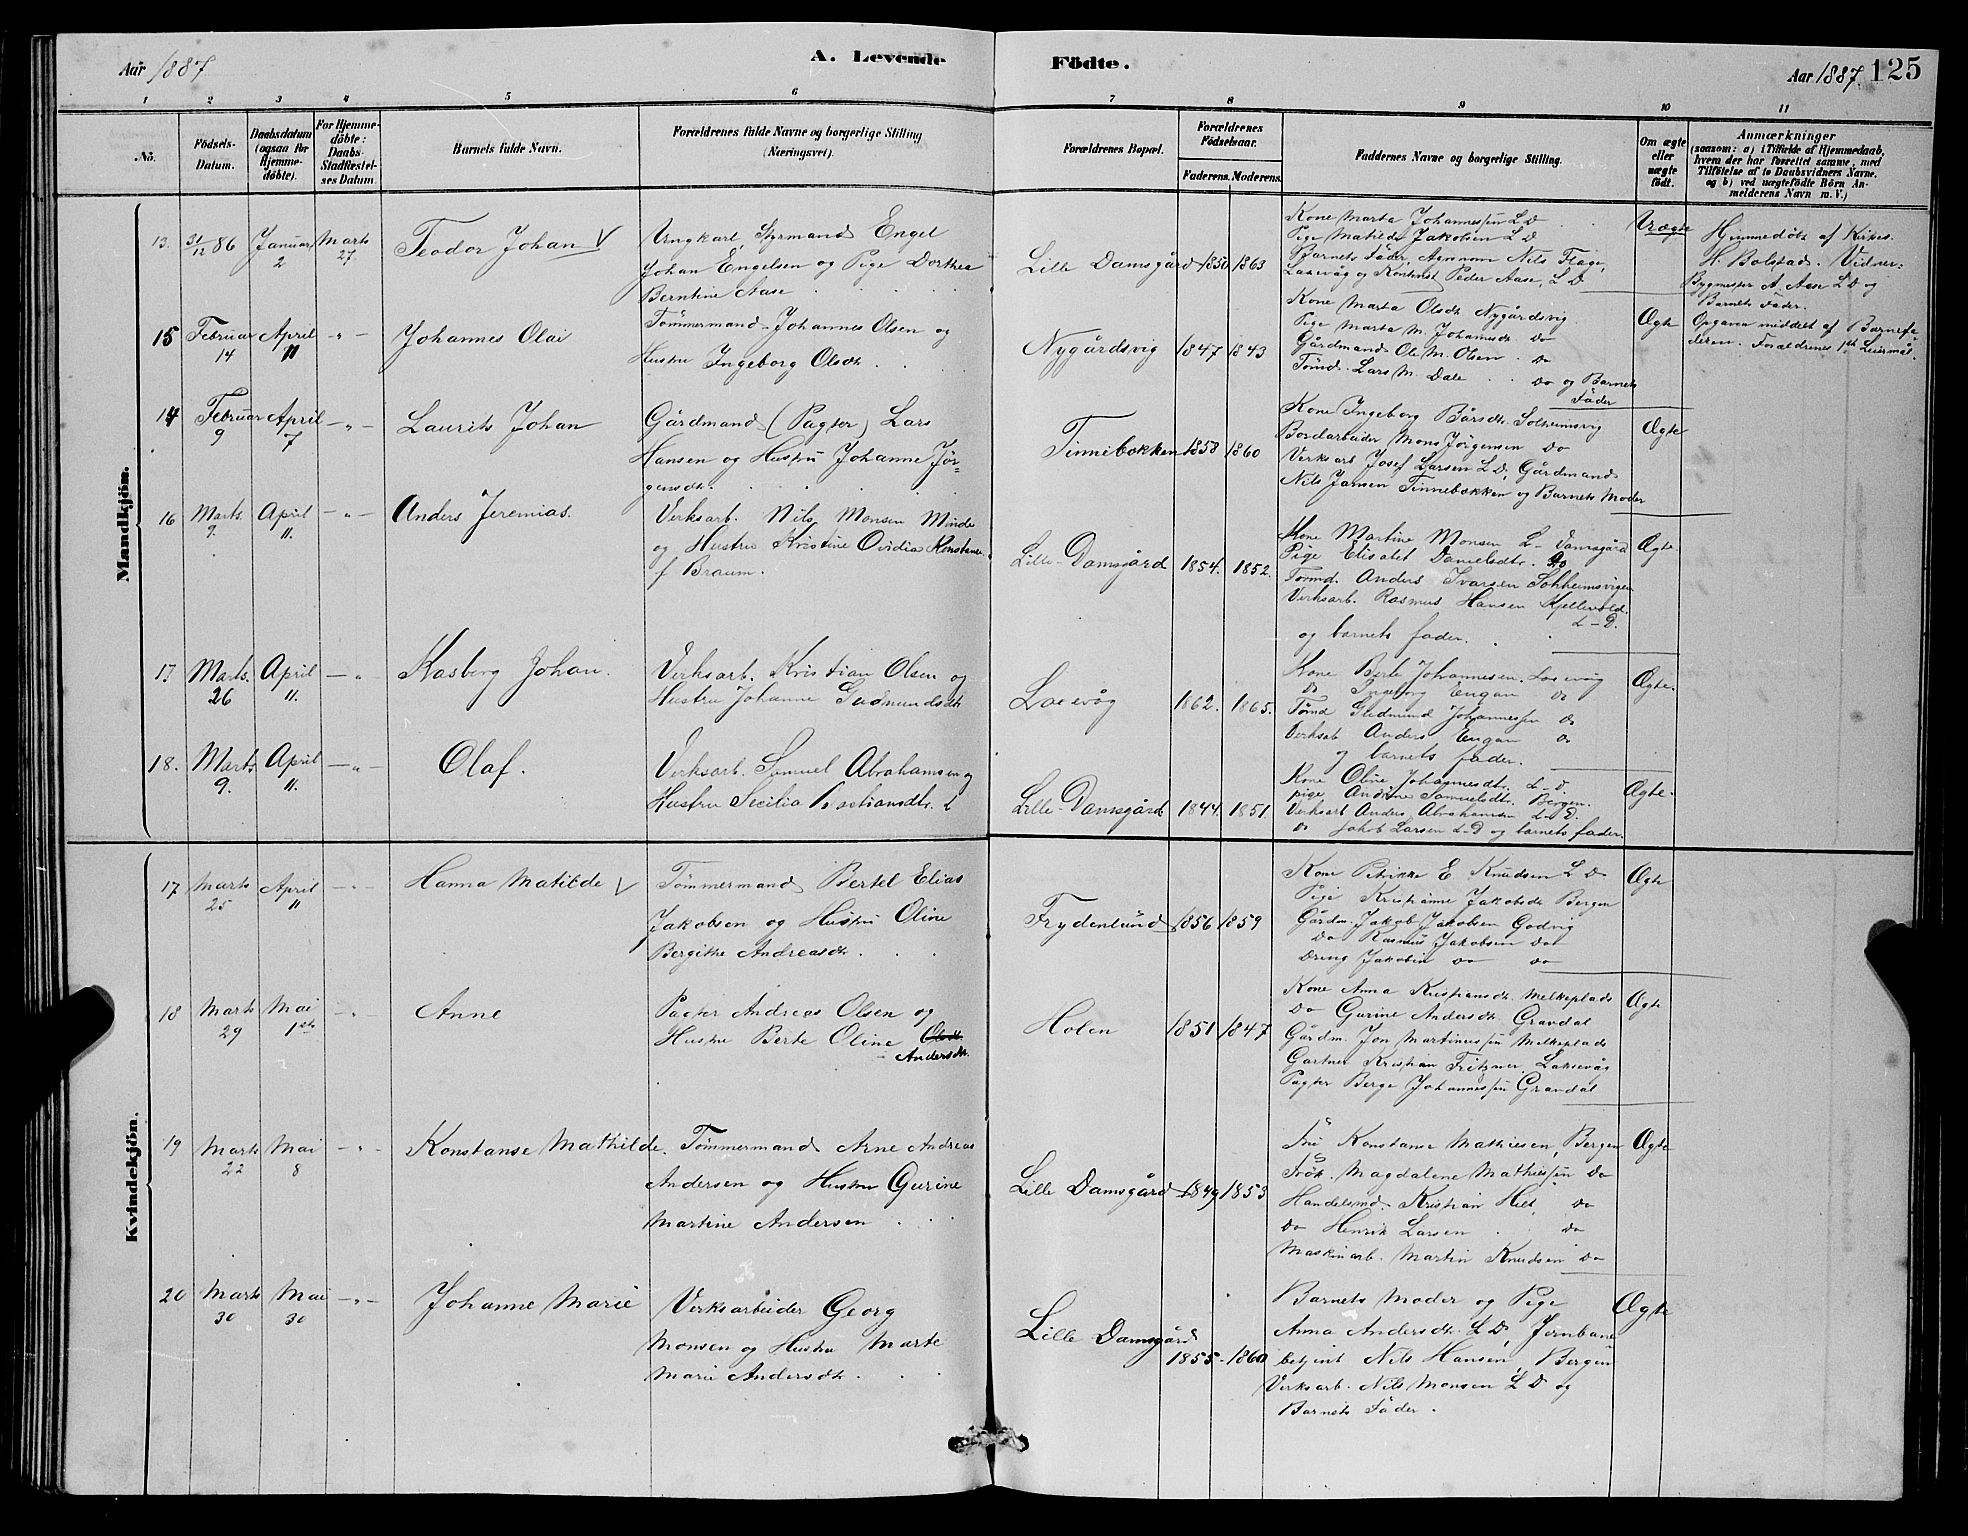 Aar 1887
A. Levende
Födte.
Aar 1887. 125
1 2 3 4 5 6 7 8 9 10 11
No.
Födsels-
Datum.
Daabsdatum
(ogsaa for
Hjemme-
döbte).
For Hjemme-
döbte:
Daabs-
Stadfæstel-
ses Datum.
Barnets fulde Navn.
Forældrenes fulde Navne og borgerlige Stilling
(Næringsvei).
Forældrenes Bopæl.
Forældrenes
Födselsaar.
Faderens. Moderens.
Faddernes Navne og borgerlige Stilling.
Om ægte
eller
uægte
født.
Anmærkninger
(saasom: a) i Tilfælde af Hjemmedaab,
hvem der har forrettet samme, med
Tilföielse af to Daabsvidners Navne,
og b) ved uægtefödte Börn An-
melderens Navn m. V.)
Mandkjön.
13. 31/12 86 Januar 2 Marts 27 Teodor Johan V
Ungkarl, Styrmand Engel
Johan Engelsen og Pige Dorthea
Berntine Aase
Lille Damsgård 1850 1863
Kone Marta Johannessen L D
Pige Matilde Jakobsen L D
Barnets Fader, Agronom Nils Flage,
Laxevåg og Kontorist Peder Aase, L D
Uægte
Hjemmedöbt af Kirkes.
H. Bolstad. Vidner:
Bygmester A. Aase L D og
Barnets Fader.
Opgaven middelt af Barnefa
deren. Forældrenes 1ste Leiermål.
15 Februar 14 April 11 - " - Johannes Olai
Tømmermand Johannes Olsen og
Hustru Ingeborg Olsdt.
Nygårdsvig 1847 1843
Kone Marta Olsdt Nygårdsvig
Pige Marta M. Johansdt Do
Gårdmand Ole M. Olsen Do
Tømmd. Lars M. Dale Do og Barnets
Fader
Ægte
14 Februar 9 April 7 - " - Laurits Johan
Gårdmand (Pagter) Lars
Hansen og Hustru Johanne Jør-
gensdt.
Tinnebekken 1858 1860
Kone Ingeborg Bårsdt. Solheimsvig
Bordarbeider Mons Jørgensen Do
Verksarb Josef Larsen L D, Gårdmand
Nils Jansen Tinnebekken og Barnets Moder
Ægte
16 Marts 9. April 11. - " - Anders Jeremias.
Verksarb. Nils Monsen Minde
og Hustru Kristine Ovidia Konstanse
f Braum.
Lille-Damsgård 1854. 1852.
Kone Martine Monsen L-Damsgård
Pige Elisabet Danielsdtr. Do
Tømmd. Anders Ivarsen Solheimsvigen
Verksarb. Rasmus Hansen Kjellevold.
L-D.
og barnets fader.
Ægte.
17 Marts. 26 April 11. - " - Kasberg Johan.
Verksarb. Kristian Olsen og
Hustru Johanne Gudmundsdt
Laxevåg 1862. 1865.
Kone Berte Johannesen. Laxevåg
Do Ingeborg Engan Do
Tømd Gudmund Johannessen Do
Verksab Anders Engan Do
og barnets fader.
Ægte.
18. Marts 9. April 11. - " - Olaf.
Verksarb. Samuel Abrahamsen og
Hustru Secilia Bastiansdtr.
Lille-Damsgård 1844. 1851.
Kone Oline Johannesdtr. L-D.
pige Andrine Samuelsdtr. Bergen.
Verksarb Anders Abrahamsen L-D.
Do Jakob Larsen L-D og barnets fader.
Ægte.
Kvindekjön.
17 Marts 25 April 11 - " - Hanna Matilde V
Tømmermand Bertel Elias
Jakobsen og Hustru Oline
Bergitte Andreasdt.
Frydenlund 1856 1859
Kone Petrikke E Knudsen L D
Pige Kristianne Jakobsdt Bergen
Gårdm. Jakob Jakobsen Godvig
Do Rasmus Jakobsen Do
Dreng Jakobin Do Do
Ægte
18 Marts 29 Mai 1ste - " - Anne
Pagter Andreas Olsen og
Hustru Berte Oline Olsdt.
Andersdt.
Holen 1851 1847
Kone Anna Kristiansdt. Melkeplads
Do Gurine Andersdt. Gravdal
Gårdm. Jon Martinussen Melkeplads
Gartner Kristian Fritzner, Laksevåg
Pagter Berge Johannessen Gravdal
Ægte
19 Marts 22 Mai 8 - " - Konstanse Mathilde.
Tømmermand Arne Andreas
Andersen og Hustru Gurine
Martine Andersen
Lille Damsgård 1849 1853
Fru Konstanse Mathiesen, Bergen
Frøk. Magdalene Mathiessen Do
Handelsmd. Kristian Hill, Do
Do Henrik Larsen Do
Maskinarb. Martin Knudsen Do
Ægte
20 Marts 30 Mai 30 - " - Johanne Marie
Verksarbeider Georg
Monsen og Hustru Marte
Marie Andersdt.
Lille Damsgård
1855 - 1860
Barnets Moder og Pige
Anna Andersdt. L D, Jernbane
betjent Nils Hansen, Bergen
Verksarb. Nils Monsen L D og
Barnets Fader.
Ægte